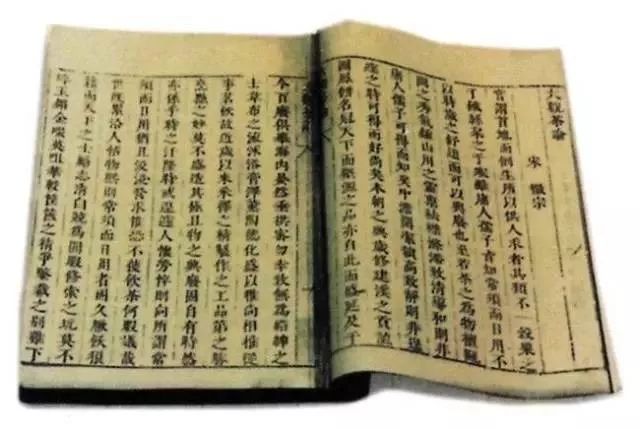 大觀茶論
宋 徽宗
嘗謂首地而倒生所以供人求者其類不一穀粟之
于饑絲枲之于寒雖庸人孺子皆知常須而日用不
以時歲之舒迫而可以興廢也至若茶之為物擅甌
閩之秀氣鍾山川之靈稟祛襟滌滯致清導和則非
庸人孺子可得而知矣中澹閒潔韻高致靜則非遑
遽之時可得而好尚矣本朝之興歲修建溪之貢龍
團鳳餅名冠天下而壑源之品亦自此而盛延及于
今百廢俱舉海內晏然垂拱密勿幸致無為縉紳之
士韋布之流沐浴膏澤薰陶德化盛以雅尚相推從
事茗飲故近歲以來采擇之精製作之工品第之勝
烹點之妙莫不盛造其極且物之興廢固自有時然
亦係乎時之汙隆時或遑遽人懷勞悴則向所謂常
須而日用猶且汲汲營求惟恐不獲飲茶何暇議哉
世既累洽人恬物熙則常須而日用者固久厭飫狼
藉而天下之士勵志清白競為閒暇修索之玩莫不
碎玉鏘金啜英咀華較筐篋之精爭鑒裁之別雖下